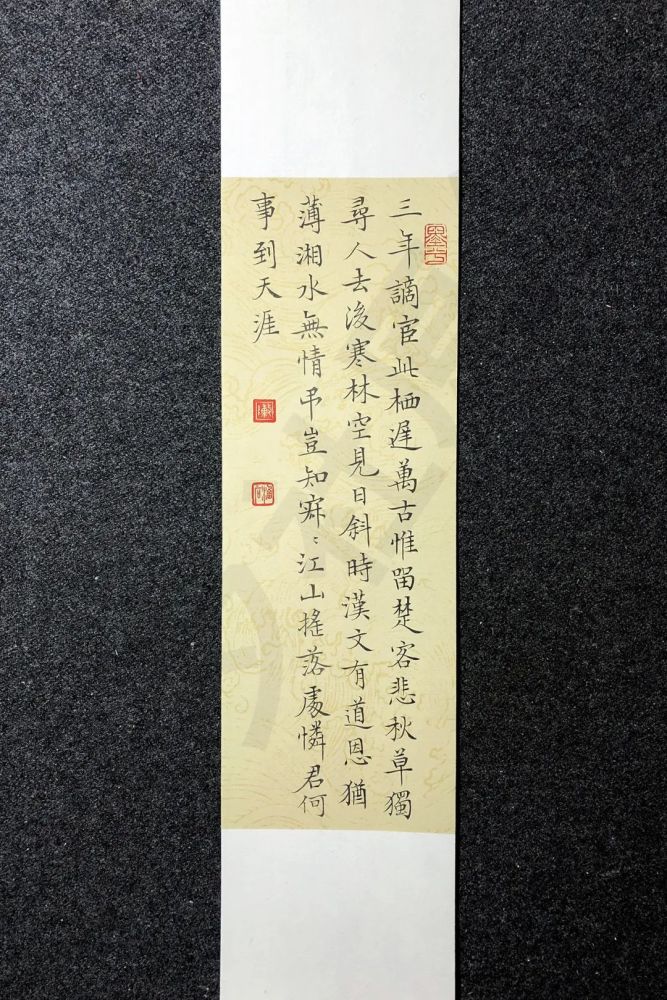 三年謫宦此栖遲萬古惟留楚客悲秋草獨
尋人去後寒林空見日斜時漢文有道恩猶
薄湘水無情弔豈知寂〻江山搖落處憐君何
事到天涯